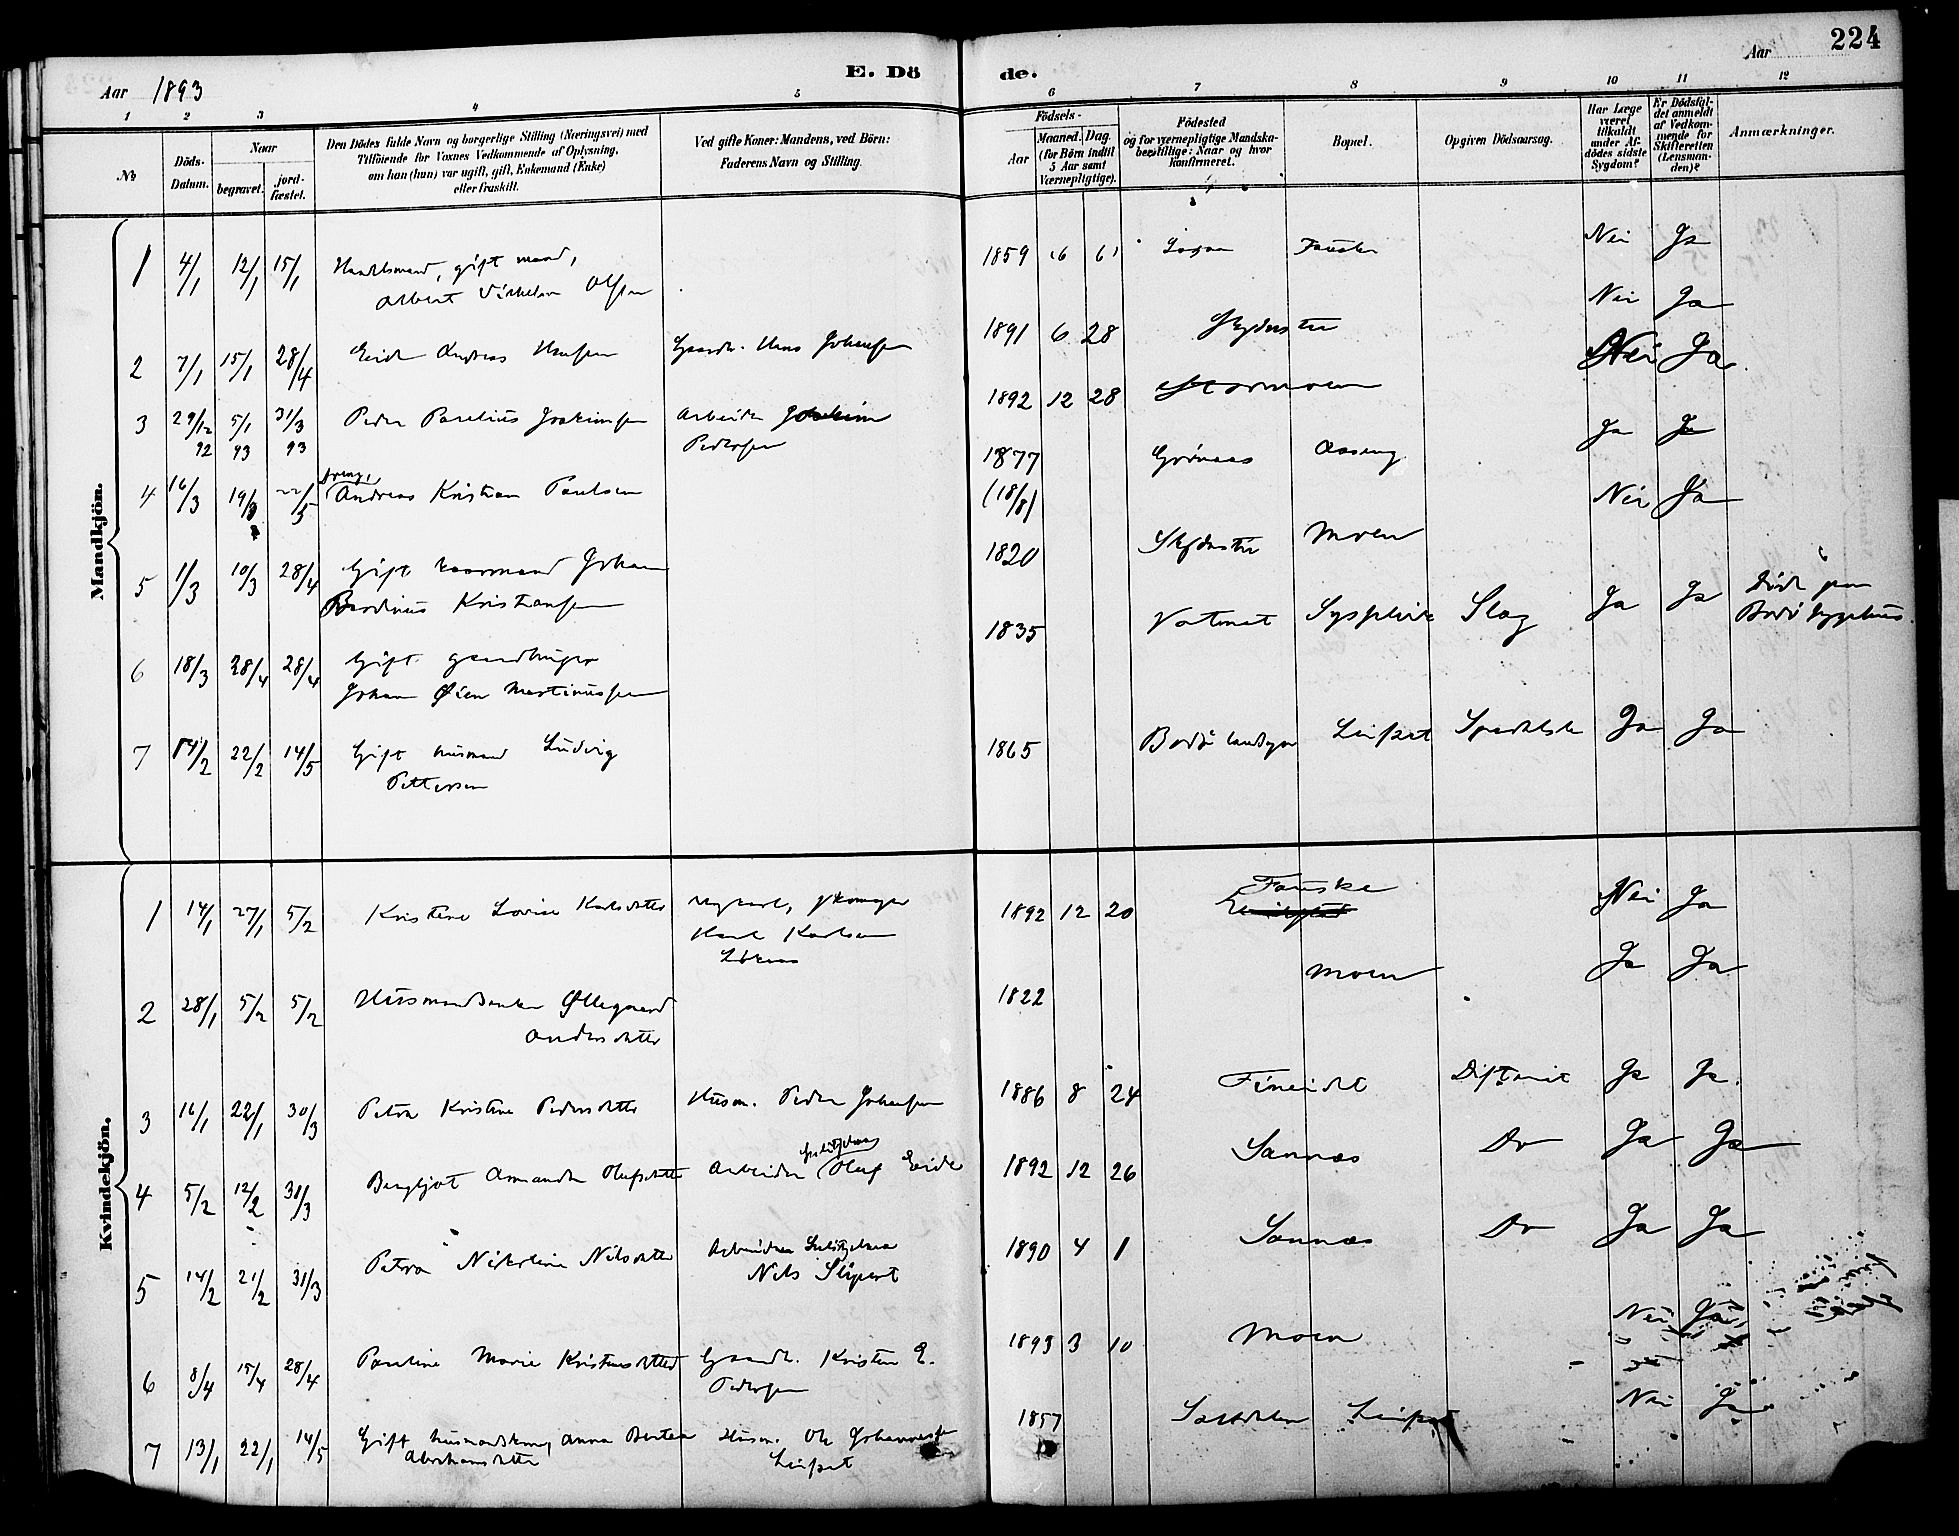 224
Aar 1893
E. Dö
de.
Aar
1 2 3 4 5 6 7 8 9 10 11 12
No
Döds-Datum.
Naar
begravet.
jord-fæstet.
Den Dödes fulde Navn og borgerlige Stilling (Næringsvei) med
Tilföiende for Voxnes Vedkommende af Oplysning,
om han (hun) var ugift, gift, Enkemand (Enke)
eller fraskilt.
Ved gifte Koner: Mandens, ved Börn:
Faderens Navn og Stilling.
Födsels-
Aar
Maaned. Dag.
(for Börn indtil
5 Aar samt
Værnepligtige).
Födested
og for værnepligtige Mandska-
besstillige: Naar og hvor
konfirmeret.
Bopæl.
Opgiven Dödsaarsag.
Har Læge
været
tilkaldt
under Af-
dödes sidste
Sygdom?
Er Dödsfal-
det anmeldt
af Vedkom-
mende for
Skifteretten
(Lensman-
den)?
Anmærkninger.
Mandkjön.
1 4/1 12/1 15/1 Handelsmand, gift mand, 1859 6 6 Fauske Nei Ja
Albert Vilhelm Olsen
2 7/1 15/1 28/4 Eirik Andreas Hansen Gaardbr. Hans Johansen 1891 6 28 Nei Ja
3 29/12 92 5/1 93 31/3 93 Peder Parelius Joakimsen Arbeider Joakim 1892 12 28 Stormoen Nei Ja
Pedersen
4 16/3 19/3 22/5 Dreng, Andreas Kristian Paulsen 1877 Ja Ja
(18/8)
5 1/3 10/3 28/4 Gift kaarmand Johan 1820 Moen Nei Ja
Bardinus Kristiansen
6 18/3 28/4 28/4 Gift gaardbruger 1835 Vatnet Slag Ja Ja Döde paa
Johan Øien Martinussen Bodö Sygehus
7 14/2 22/2 14/5 Gift husmand Ludvig 1865 Bodö landsogn Leifset Spedalsk Ja Ja
Pettersen
Kvindekjön.
1 14/1 27/1 5/2 Kristine Lovise Karlsdatter 1892 12 20 Fauske Nei Ja
Karl Karlsen
2 28/1 5/2 5/2 Husmandsenke Øllegaard 1822 Moen Ja Ja
Andersdatter
3 16/1 22/1 30/3 Petra Kristine Pedersdatter Husm. Peder Johansen 1886 8 24 Fineidet Difterit Ja Ja
4 5/2 12/2 31/3 Bergljot Amanda Olufsdatter Arbeider Sulitjelma Oluf Eide 1892 12 26 Sannæs Do Ja Ja
5 14/2 21/2 31/3 Petra Nikoline Nilsdatter Arbeider Sulitjelma 1890 4 1 Sannæs Do Ja Ja
Nils
6 8/4 15/4 28/4 Pauline Marie Kristensdatter Gaardb. Kristen E. 1893 3 10 Moen Nei Ja
Pedersen
7 13/1 22/1 14/5 Gift husmandskone, Anna Bertea Husm. Ole Johannessen 1857 Saltdalen Leifset Nei Ja
Abrahamsdatter Leifset